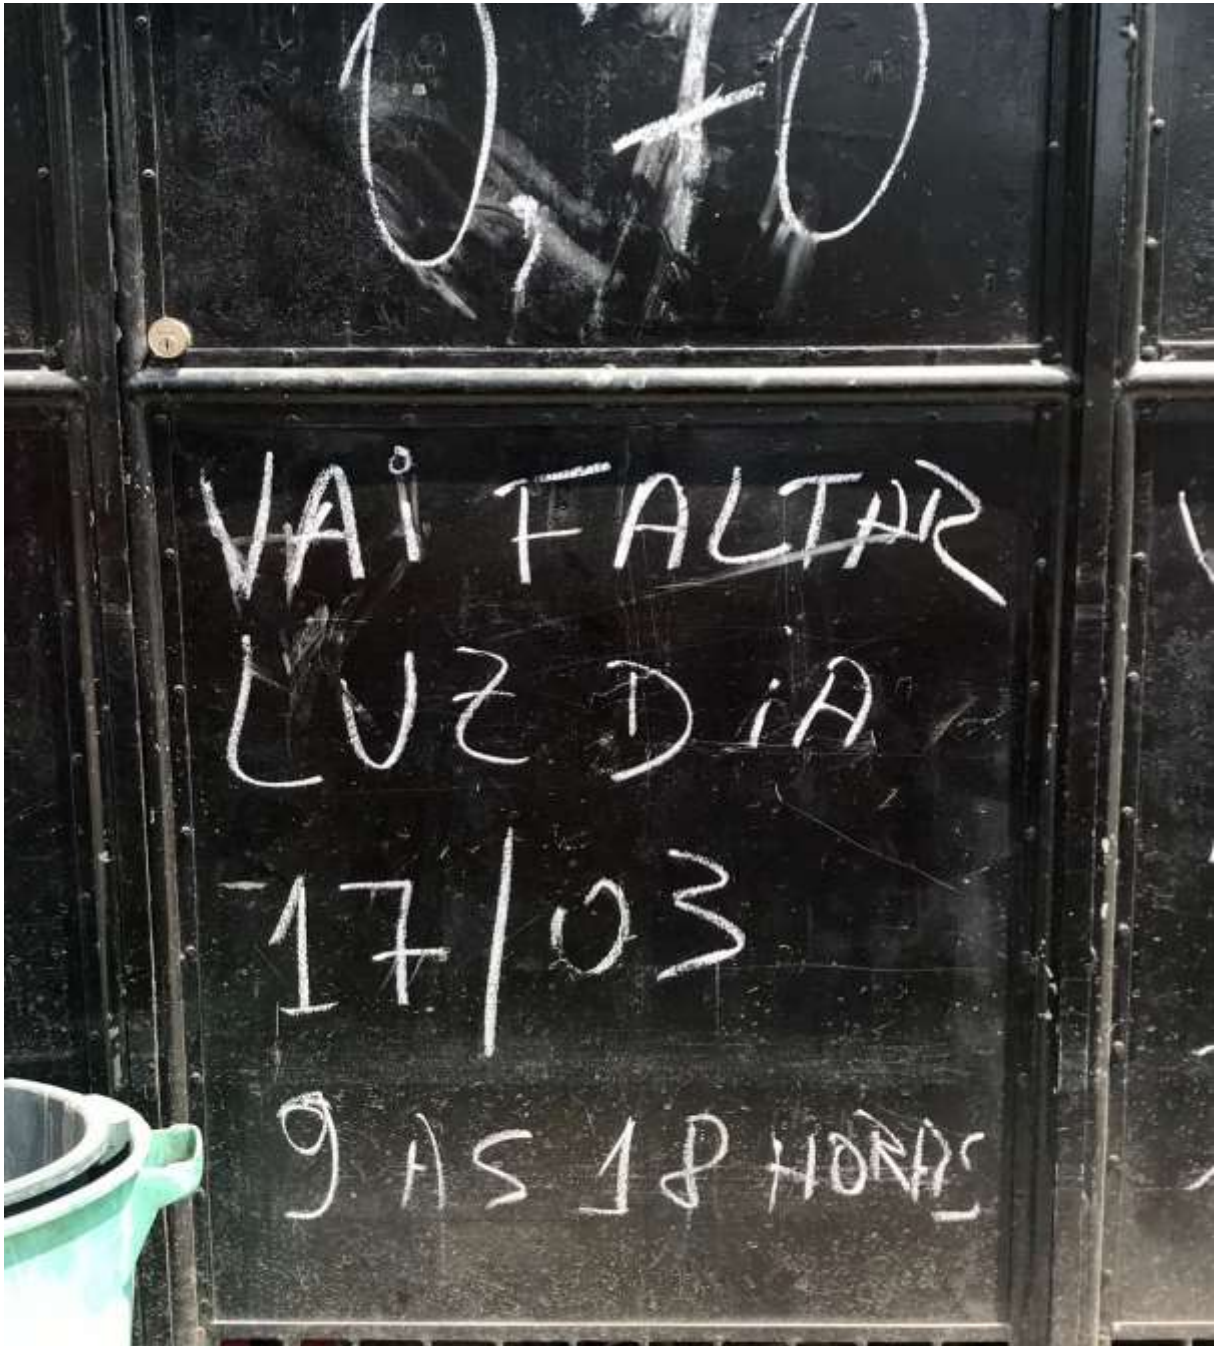 0,70
VAi FALTAR
LUZ DiA
17/03
9 AS 18 HORAS